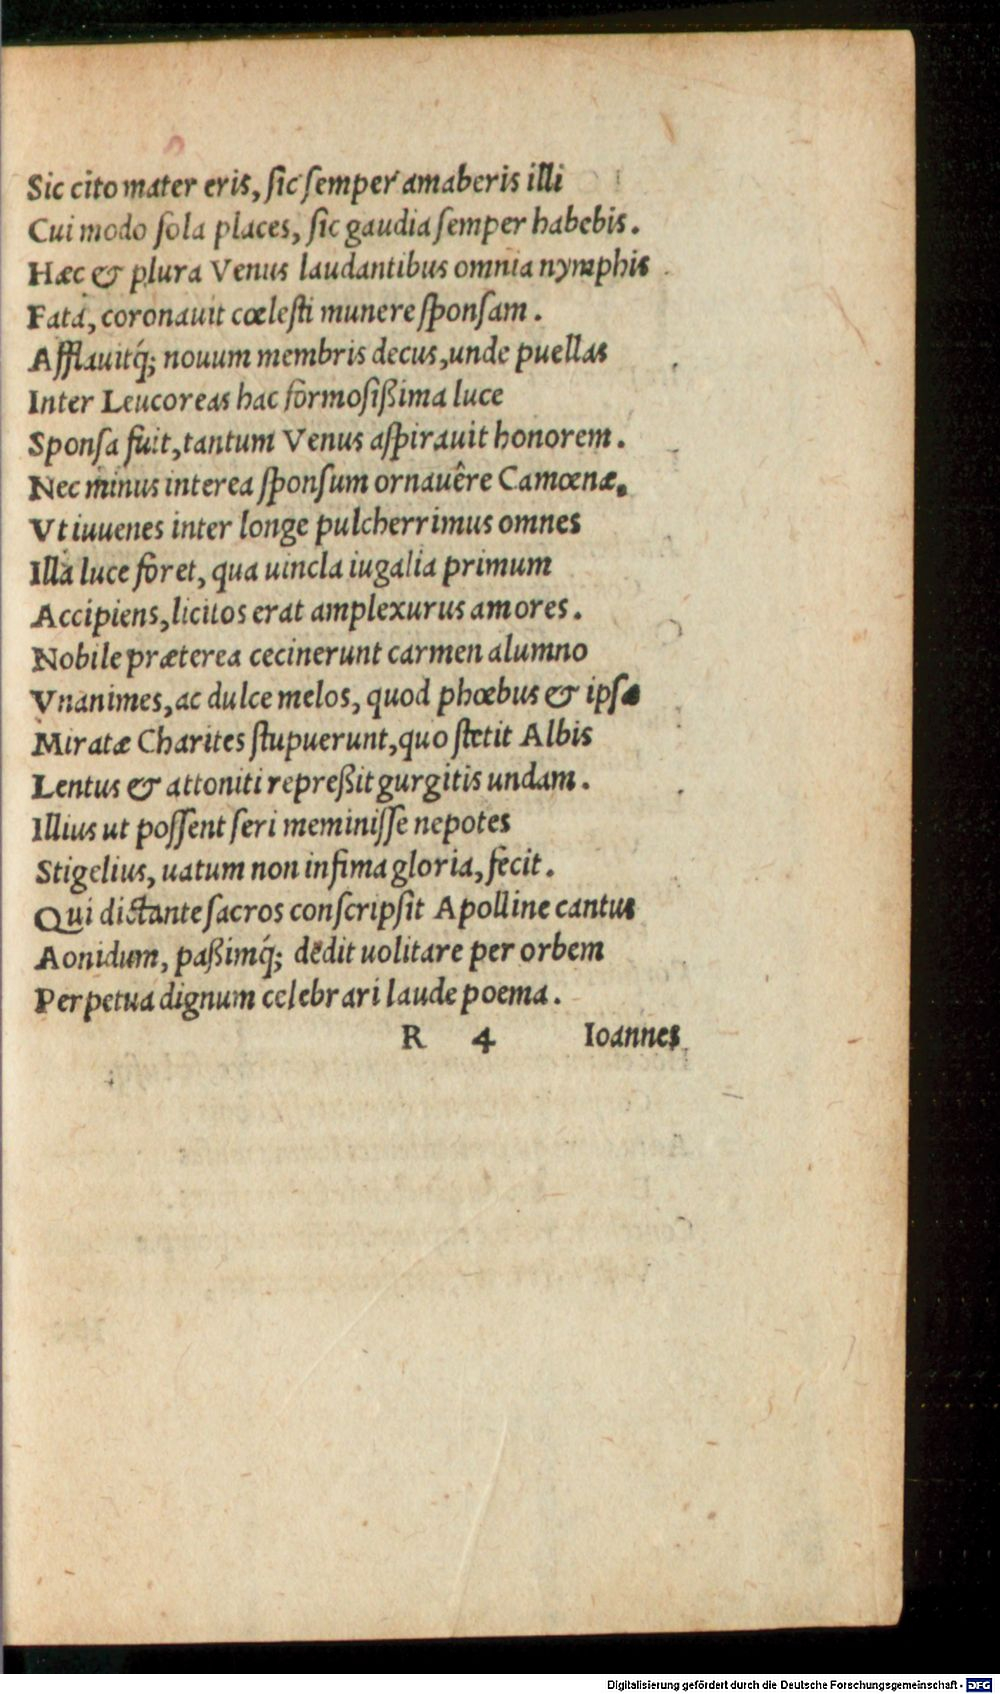 Sic cito mater eris, ſic ſemper amaberis illi
Cui modo ſola places, ſic gaudia ſemper habebis.
Hæc & plura Venus laudantibus omnia nymphis
Fata, coronauit cœleſti munere ſponſam.
Afflauitq́; nouum membris decus, unde puellas
Inter Leucoreas hac formoſißima luce
Sponſa fuit, tantum Venus aſpirauit honorem.
Nec minus interea ſponſum ornauêre Camœnæ.
Vt iuuenes inter longe pulcherrimus omnes
Illa luce foret, qua uincla iugalia primum
Accipiens, licitos erat amplexurus amores.
Nobile præterea cecinerunt carmen alumno
Vnanimes, ac dulce melos, quod phœbus & ipſæ
Miratæ Charites ſtupuerunt, quo ſtetit Albis
Lentus & attoniti repreßit gurgitis undam.
Illius ut poſſent ſeri meminiſſe nepotes
Stigelius, uatum non infima gloria, fecit.
Qui dictante ſacros conſcripſit Apolline cantus
Aonidum, paßimq́; dedit uolitare per orbem
Perpetua dignum celebrari laude poema.
R 4 Ioannes
Digitalisierung gefördert durch die Deutsche Forschungsgemeinschaft - DFG